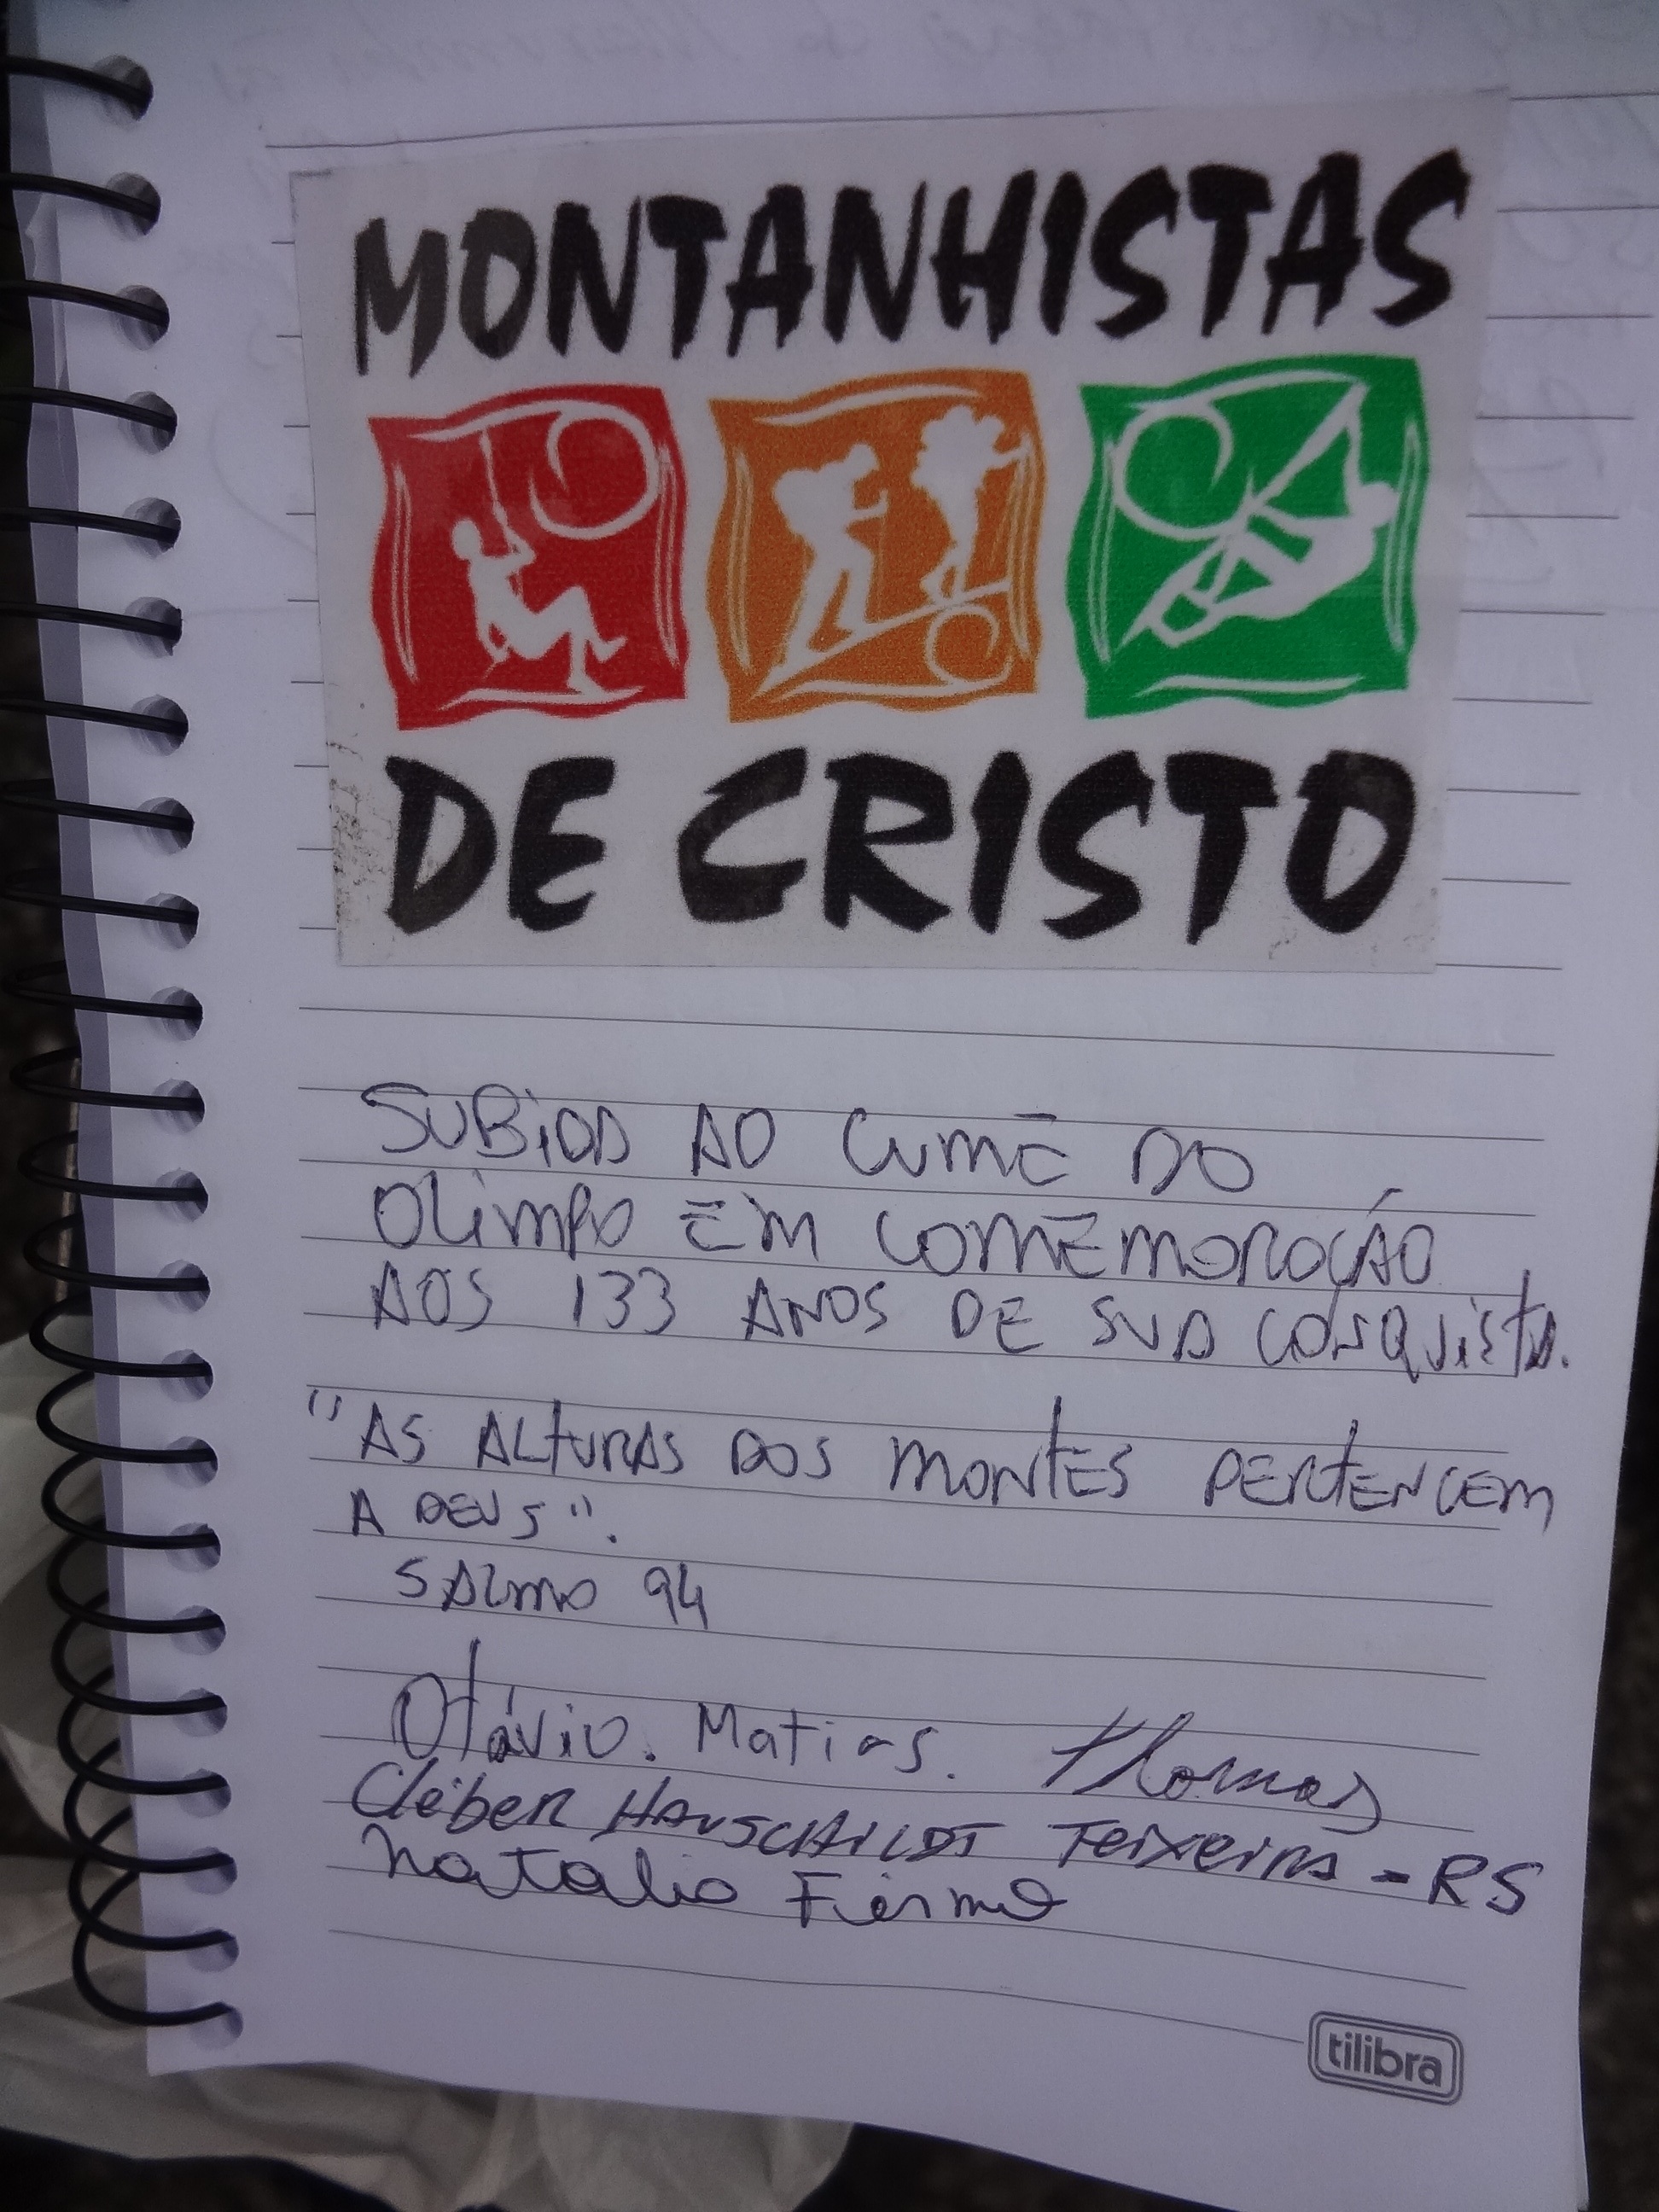 MONTANHISTAS
DE CRISTO
SUBIDA AO CUME DO
OLIMPO EM COMEMORAÇÃO
AOS 133 ANOS DE SUA CONQUISTA.
"AS ALTURAS DOS MONTES PERTENCEM
A DEUS".
SALMO 94
Otávio. Matias. Thomas
Cléber HAUSCHILDT Teixeira - RS
Natalia Firmo
tilibra